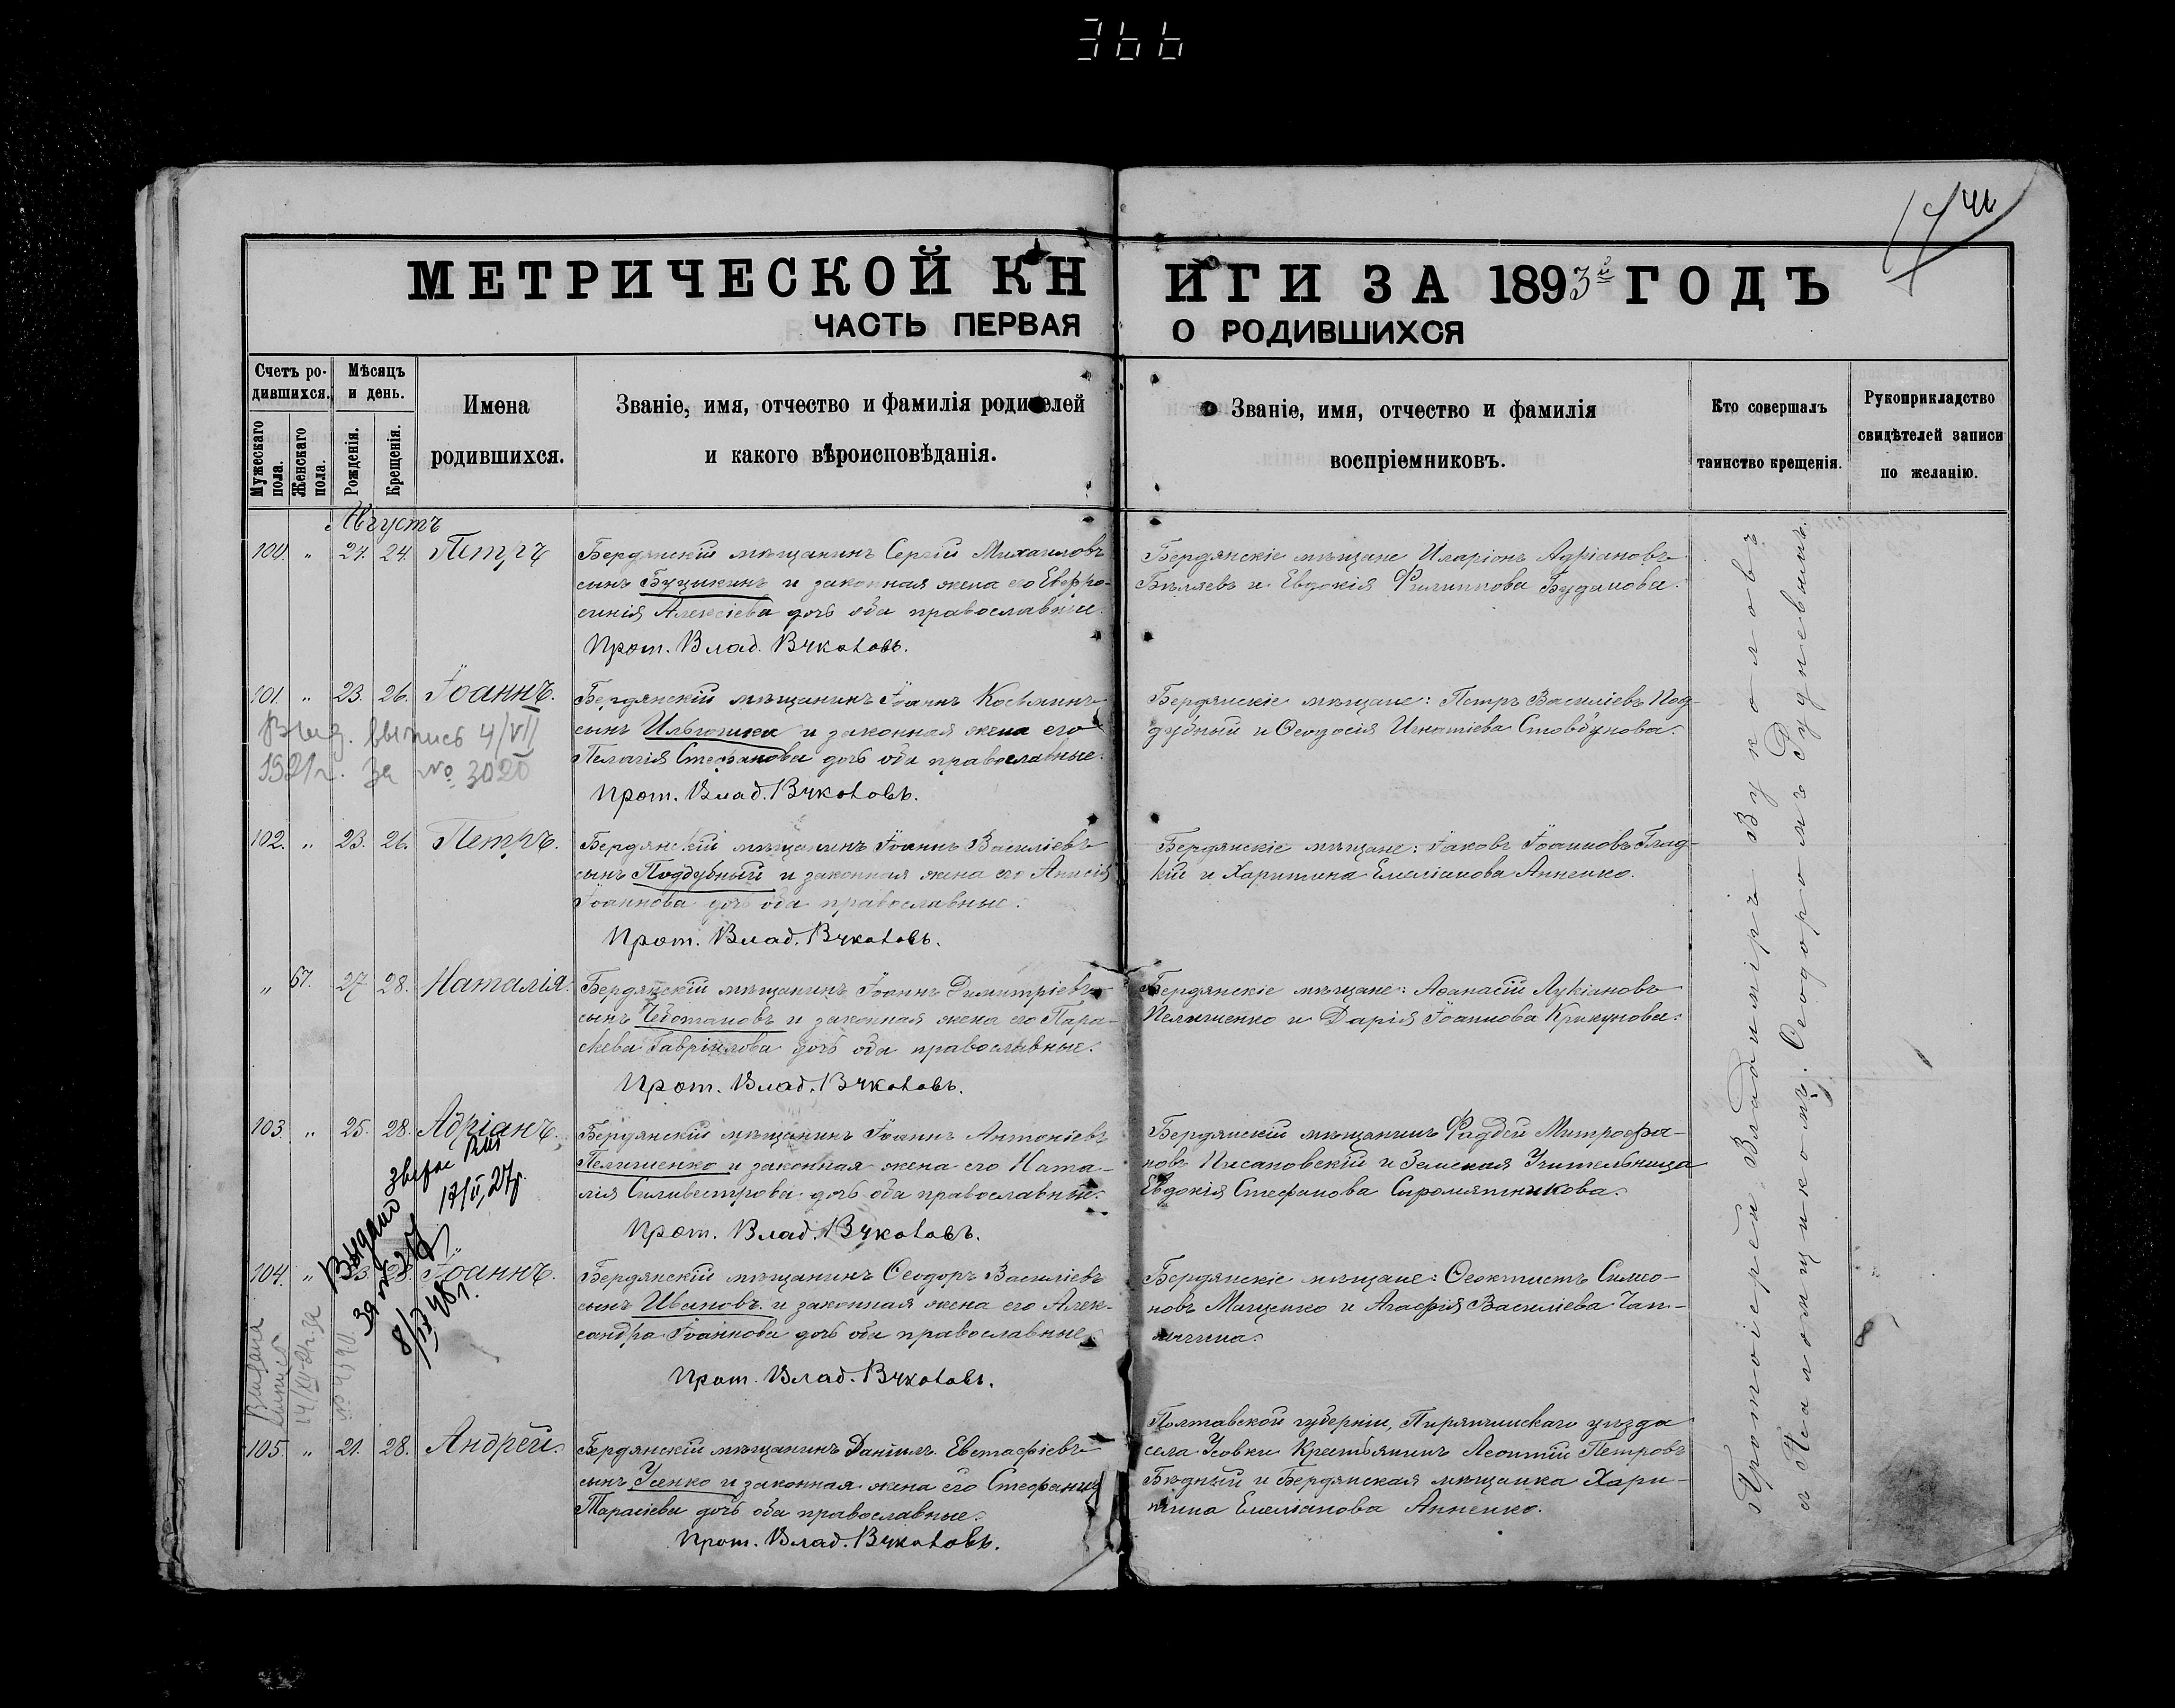 366
МЕТРИЧЕСКОЙ КНИГИ ЗА 1893й ГОДЪ
ЧАСТЬ ПЕРВАЯ О РОДИВШИХСЯ
Счетъ ро-
дившихся.
Мужескаго пола.
Женскаго пола.
Мѣсяцъ
и день.
Рожденія.
Крещенія.
Имена
родившихся.
Званіе, имя, отчество и фамилія родителей
и какого вѣроисповѣданія.
Званіе, имя, отчество и фамилія
воспріемниковъ.
Кто совершалъ
таинство крещенія.
Рукоприкладство
свидѣтелей записи
по желанію.
Августъ
100. " 21. 24. Петръ
Бердянскій мѣщанинъ Сергій Михаиловъ
сынъ и законная жена его Евфро-
синія Алексіева дочь оба православные.
Прот. Влад. Вуколовъ.
Бердянскіе мѣщане Иларіонъ Адріановъ
Бѣляевъ и Евдокія Филиппова Буданова.
101. " 23. 26. Іоаннъ.
Бердянскій мѣщанинъ Іоаннъ Косьминъ
сынъ и законная жена его
Пелагія Стефанова дочь оба православные.
Прот. Влад. Вуколовъ.
Бердянскіе мѣщане: Петръ Василіевъ Под-
дубный и Ѳеодосія Игнатіева Стовбунова.
Выд. выпись 4/VII
1921 г. за № 3020
102. " 23. 26. Петръ.
Бердянскій мѣщанинъ Іоаннъ Василіевъ
сынъ Поддубный и законная жена его Анисія
Іоаннова дочь оба православные.
Прот. Влад. Вуколовъ.
Бердянскіе мѣщане: Іаковъ Іоанновъ Глад-
кій и Харитина Емеліанова Анненко.
" 67. 27 28. Наталія.
Бердянскій мѣщанинъ Іоаннъ Димитріевъ
сынъ и законная жена его Пара-
скева Гавріилова дочь оба православные.
Прот. Влад. Вуколовъ.
Бердянскіе мѣщане: Аѳанасій Лукіановъ
Пелишенко и Дарія Іоаннова Крикунова.
103. " 25. 28. Адріанъ.
Бердянскій мѣщанинъ Іоаннъ Антоніевъ
Пелишенко и законная жена его Ната-
лія Силивестрова дочь оба православные.
Прот. Влад. Вуколовъ.
Бердянскій мѣщанинъ Фаддей Митрофа-
новъ Писановскій и Земская Учительница
Евдокія Стефанова Сыромятникова.
Выдано
17/II, 27 г.
8/IX 48 г.
104. " 23. 28. Іоаннъ.
Бердянскій мѣщанинъ Ѳеодоръ Василіевъ
сынъ Ивановъ и законная жена его Алек-
сандра Іоаннова дочь оба православные.
Прот. Влад. Вуколовъ.
Бердянскіе мѣщане: Ѳеоктистъ Симео-
новъ Мащенко и Агафія Василіева
105. " 21. 28. Андрей.
Бердянскій мѣщанинъ Даніилъ Евстафіевъ
сынъ Усенко и законная жена его Стефанида
Тарасіева дочь оба православные.
Прот. Влад. Вуколовъ.
Полтавской губерніи, Пирятинскаго уѣзда
села Усовки Крестьянинъ Леонтій Петровъ
Бѣдный и Бердянская мѣщанка Хари-
тина Емеліанова Анненко.
Протоіерей Владиміръ Вуколовъ
съ Псаломщикомъ Ѳеодоромъ Рудневымъ.